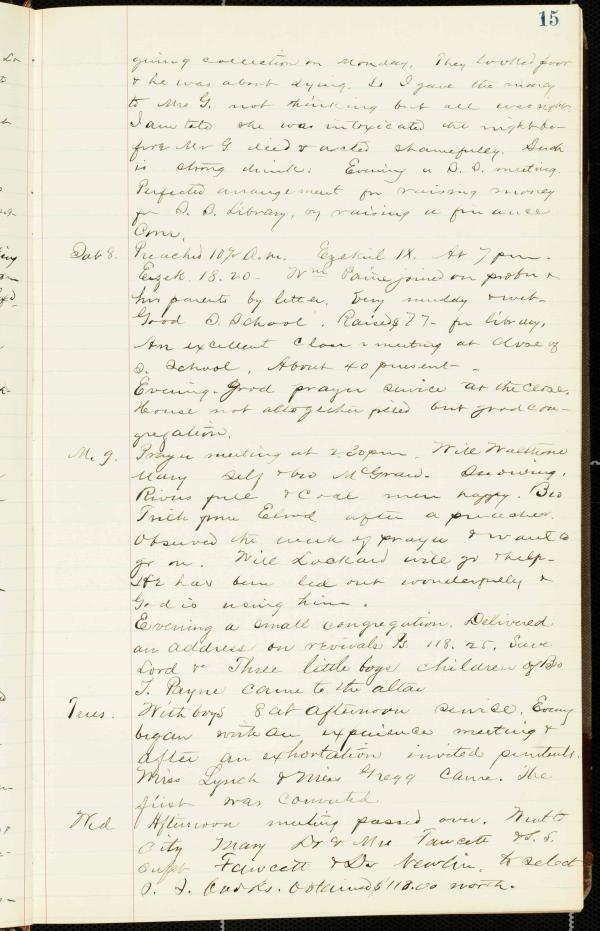 15
giving collection on Monday. They looked poor
& he was about dying. So I gave the money
to Mrs G. not thinking but all was right.
I am told she was intoxicated the night be-
fore Mr G died & acted shamefully. Such
is strong drink. Evening a S. S. meeting.
Perfected arrangement for raising money
for S. S. Library, by raising a finance
Com.
Sab 8. Preached 10½ A.m. Ezekiel IX. At 7 pm.
Ezek. 18.20- Wm Paine joined on probn &
his parents by letter. Very muddy & wet-
Good S. School. Raised $77- for library.
An excellent class meeting at close of
S. School. About 40 present-
Evening- Good prayer service at the close.
House not altogether filled but good con-
gregation.
M. 9. Prayer meeting at 2:30 pm. Will
Mary Self & bro McGraw. Snowing.
Rivers full & coal men happy. Bro
from Elrod after a preacher.
Observed the week of prayer & want to
go on. Will Lockard will go & help-
He has been led out wonderfully &
God is using him.
Evening a small congregation. Delivered
an address on revivals Ps. 118. 25. Save
Lord &c Three little boys children of Bro
T. Payne came to the altar
Tues. With boys 8 at afternoon service. Evening
began with an experience meeting &
after an exhortation invited penitents.
Miss Lynch & Miss Gregg came. The
first was converted
Wed Afternoon meeting passed over. Went to
City Mary Dr & Mrs Fawcett & S. S.
Supt Fawcett & Dr Newlin, to select
S. S. Books. Obtained $110.00 worth.